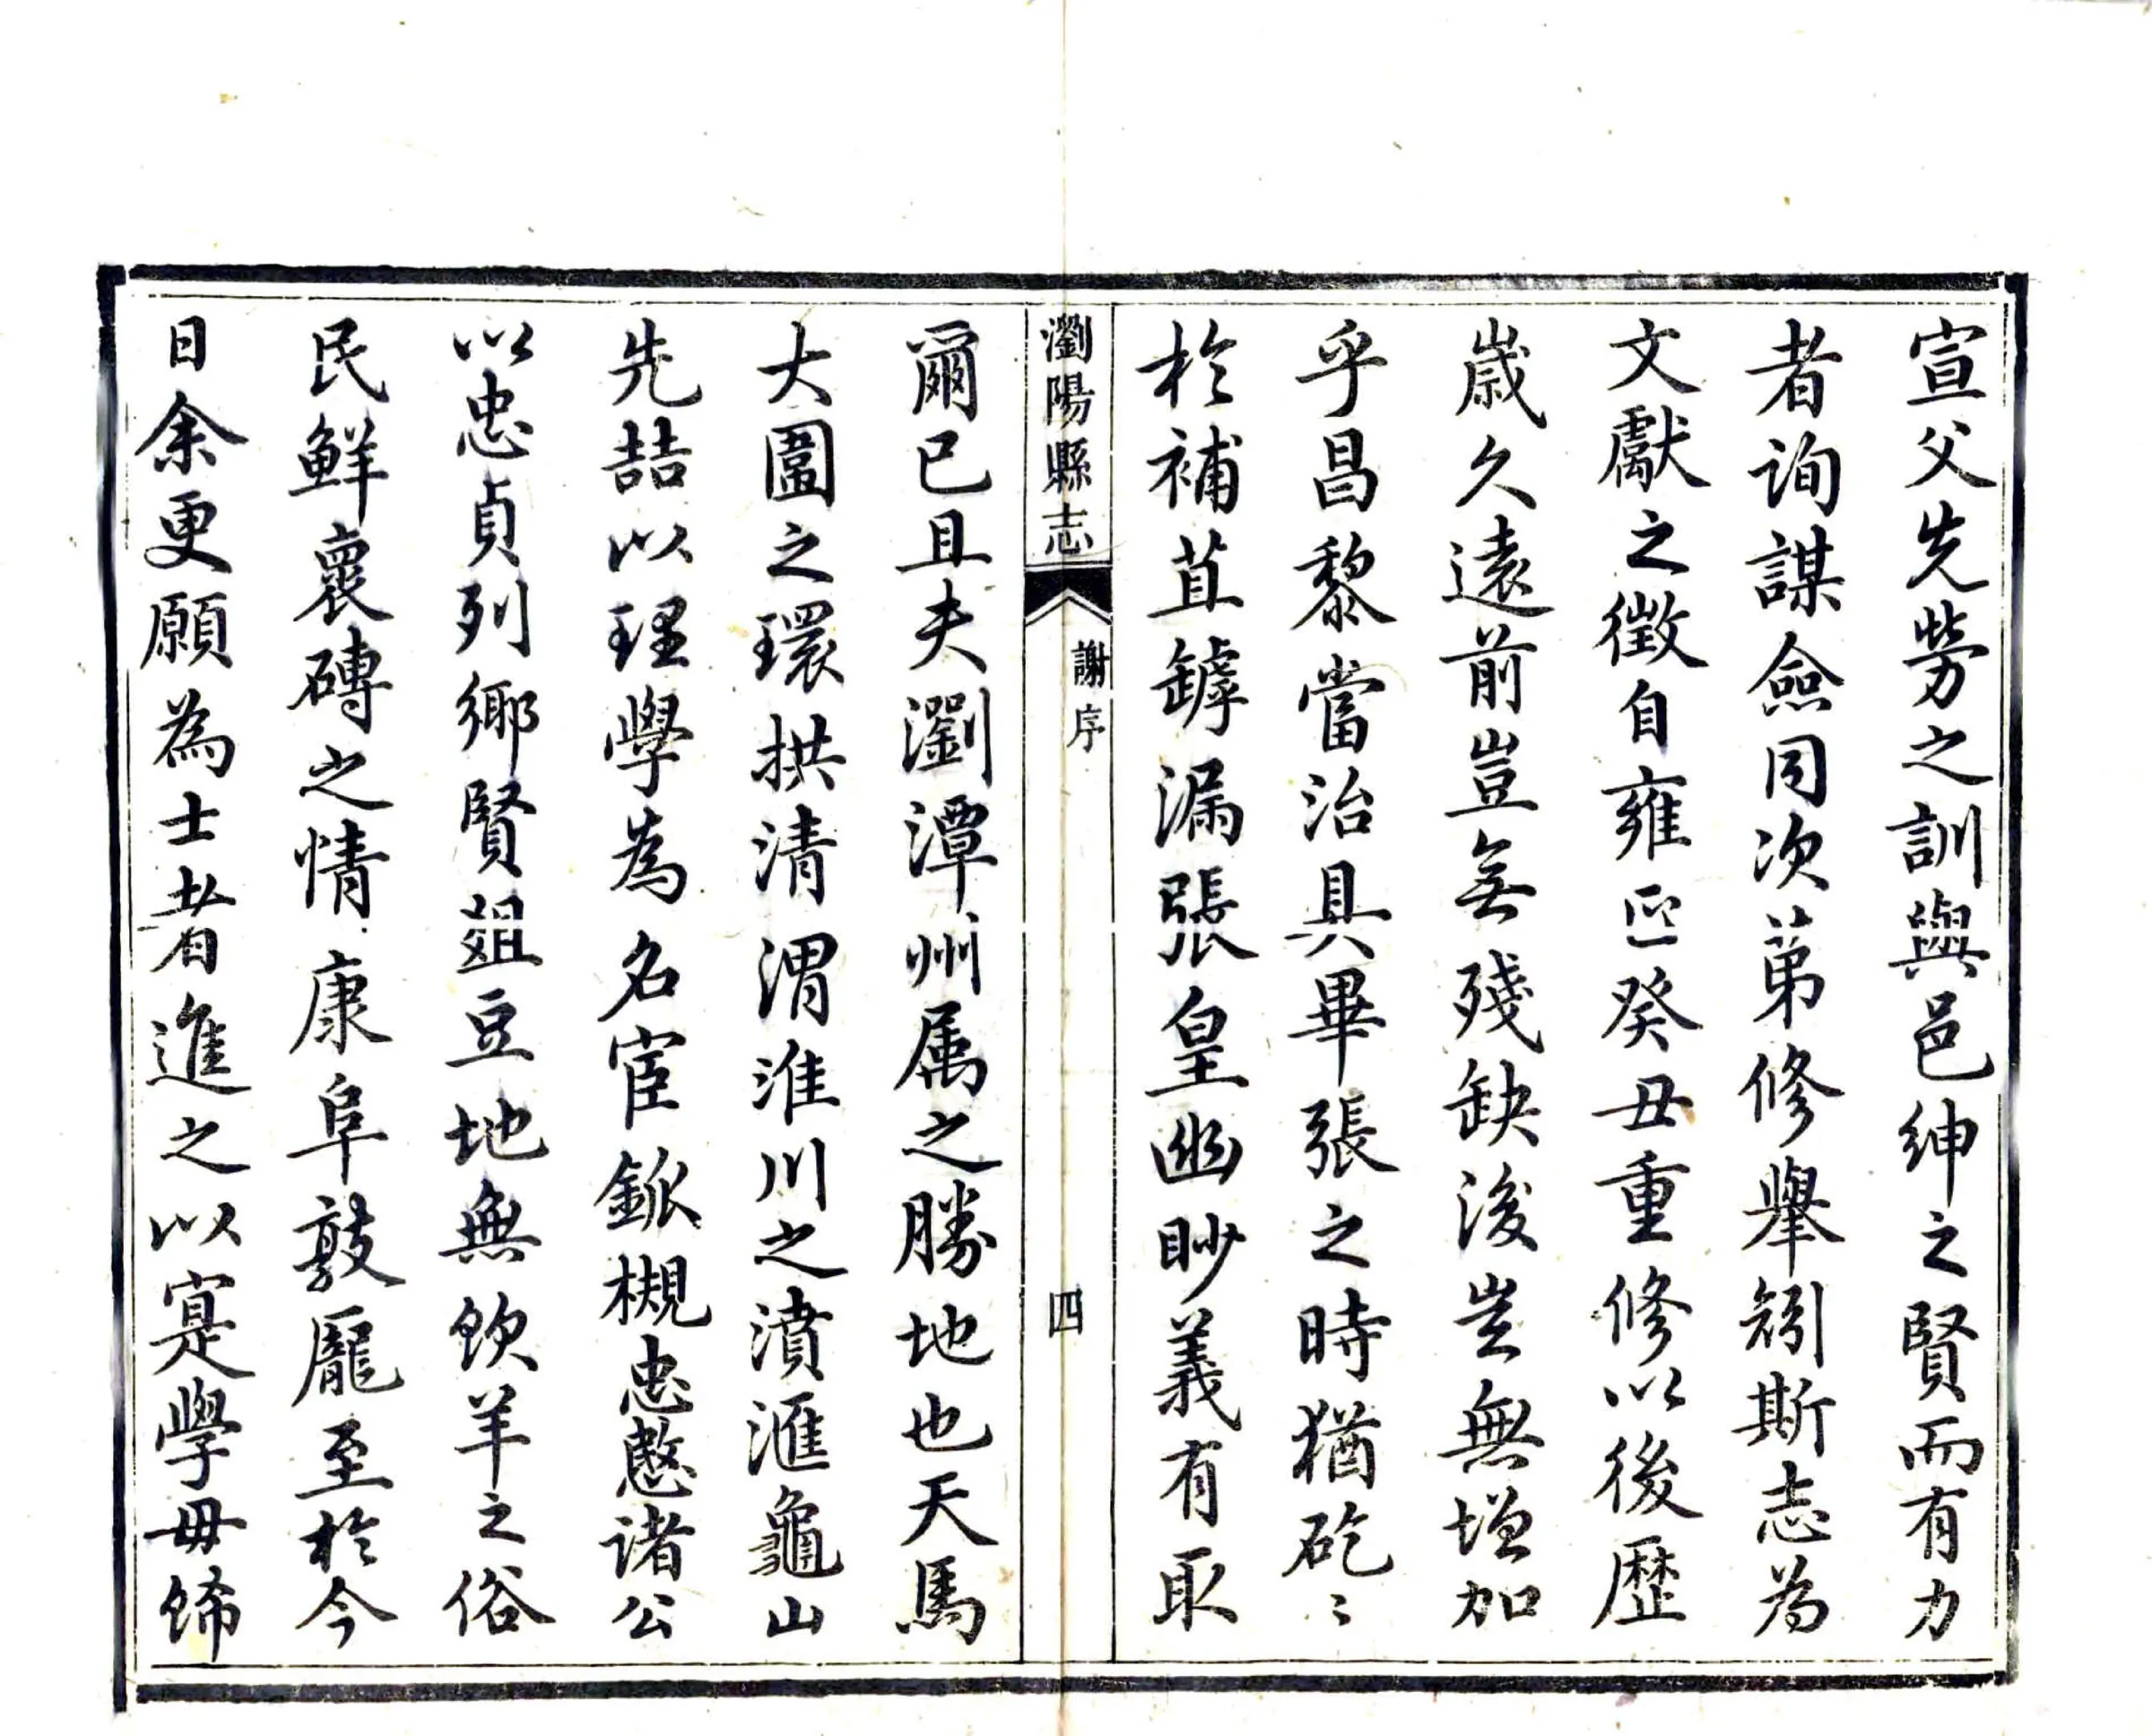 宣父先勞之訓與邑紳之賢而有力
者詢謀僉同次第修舉矧斯志為
文獻之徵自雍正癸丑重修以後歷
歲久遠前豈無殘缺後豈無增加
乎昌黎當治具畢張之時猶矻〻
於補苴罅漏張皇幽眇義有取
瀏陽縣志
謝序
四
爾已且夫瀏潭州属之勝地也天馬
大圍之環拱清渭淮川之濆滙龜山
先喆以理學為名宦鉞槻忠愍諸公
以忠貞列鄉賢爼豆地無飲羊之俗
民鮮裹磚之情康阜敦龐至於今
日余更願為士者進之以寔學毋餙